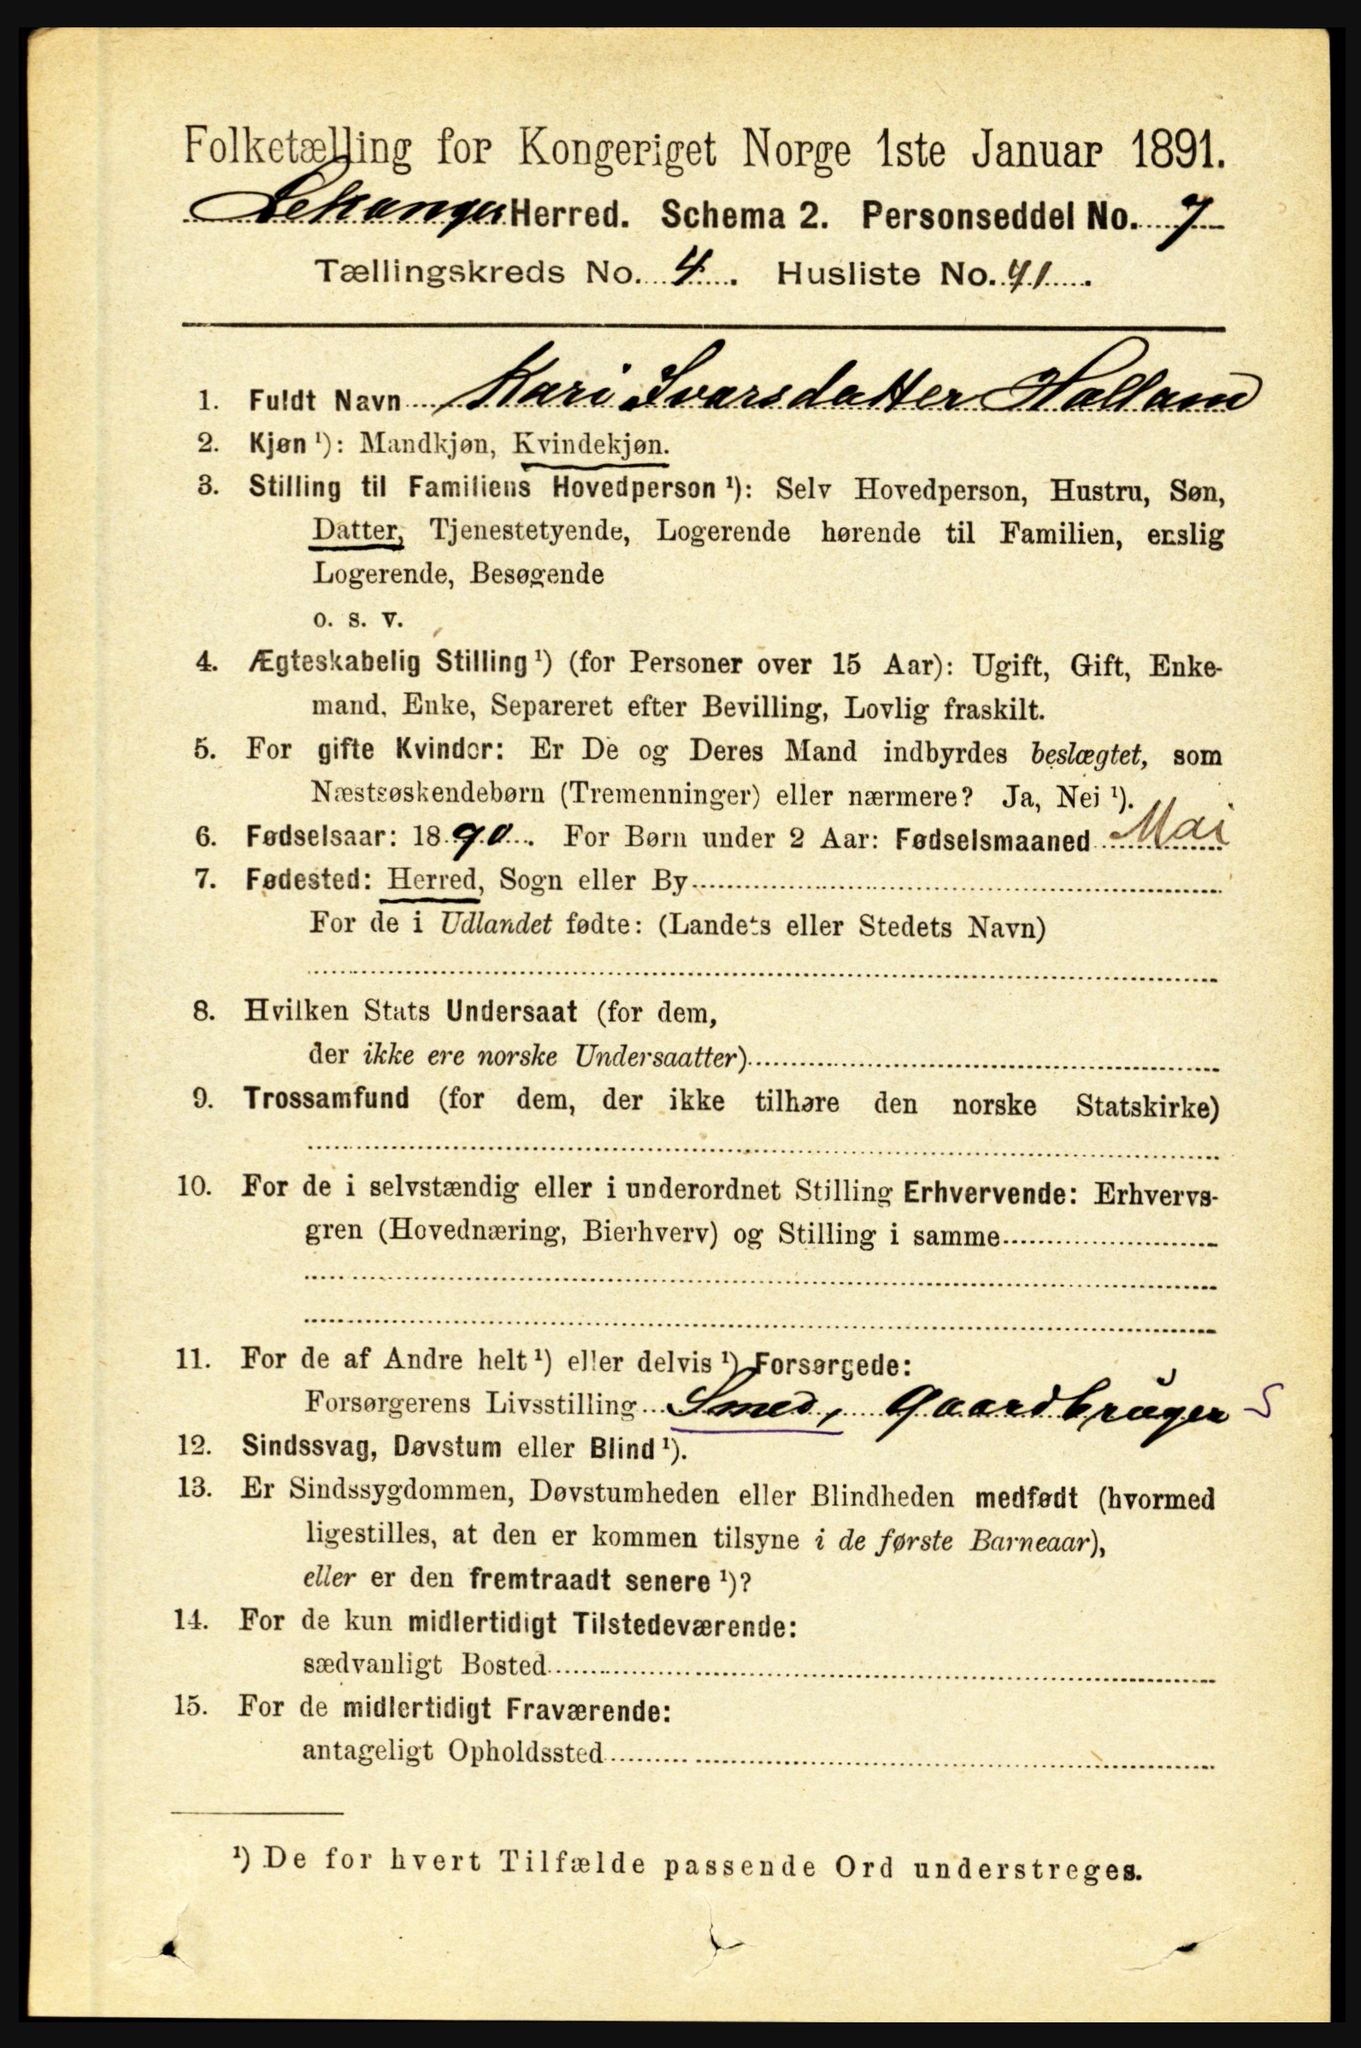 Folketælling for Kongeriget Norge 1ste Januar 1891.
Lekanger Herred. Schema 2. Personseddel No. 7
Tællingskreds No. 4. Husliste No. 41.
1. Fuldt Navn Kari Ivarsdatter Hallam
2. Kjøn ¹): Mandkjøn, Kvindekjøn.
3. Stilling til Familiens Hovedperson ¹): Selv Hovedperson, Hustru, Søn,
Datter, Tjenestetyende, Logerende hørende til Familien, enslig
Logerende, Besøgende
o. s. v.
4. Ægteskabelig Stilling ¹) (for Personer over 15 Aar): Ugift, Gift, Enke-
mand, Enke, Separeret efter Bevilling, Lovlig fraskilt.
5. For gifte Kvinder: Er De og Deres Mand indbyrdes beslægtet, som
Næstsøskendebørn (Tremenninger) eller nærmere? Ja, Nei ¹).
6. Fødselsaar: 1890. For Børn under 2 Aar: Fødselsmaaned Mai
7. Fødested: Herred, Sogn eller By
For de i Udlandet fødte: (Landets eller Stedets Navn)
8. Hvilken Stats Undersaat (for dem,
der ikke ere norske Undersaatter)
9. Trossamfund (for dem, der ikke tilhøre den norske Statskirke)
10. For de i selvstændig eller i underordnet Stilling Erhvervende: Erhvervs-
gren (Hovednæring, Bierhverv) og Stilling i samme
11. For de af Andre helt ¹) eller delvis ¹) Forsørgede:
Forsørgerens Livsstilling Smed, Gaardbruger S
12. Sindssvag, Døvstum eller Blind ¹).
13. Er Sindssygdommen, Døvstumheden eller Blindheden medfødt (hvormed
ligestilles, at den er kommen tilsyne i de første Barneaar),
eller er den fremtraadt senere ¹)?
14. For de kun midlertidigt Tilstedeværende:
sædvanligt Bosted
15. For de midlertidigt Fraværende:
antageligt Opholdssted
¹) De for hvert Tilfælde passende Ord understreges.